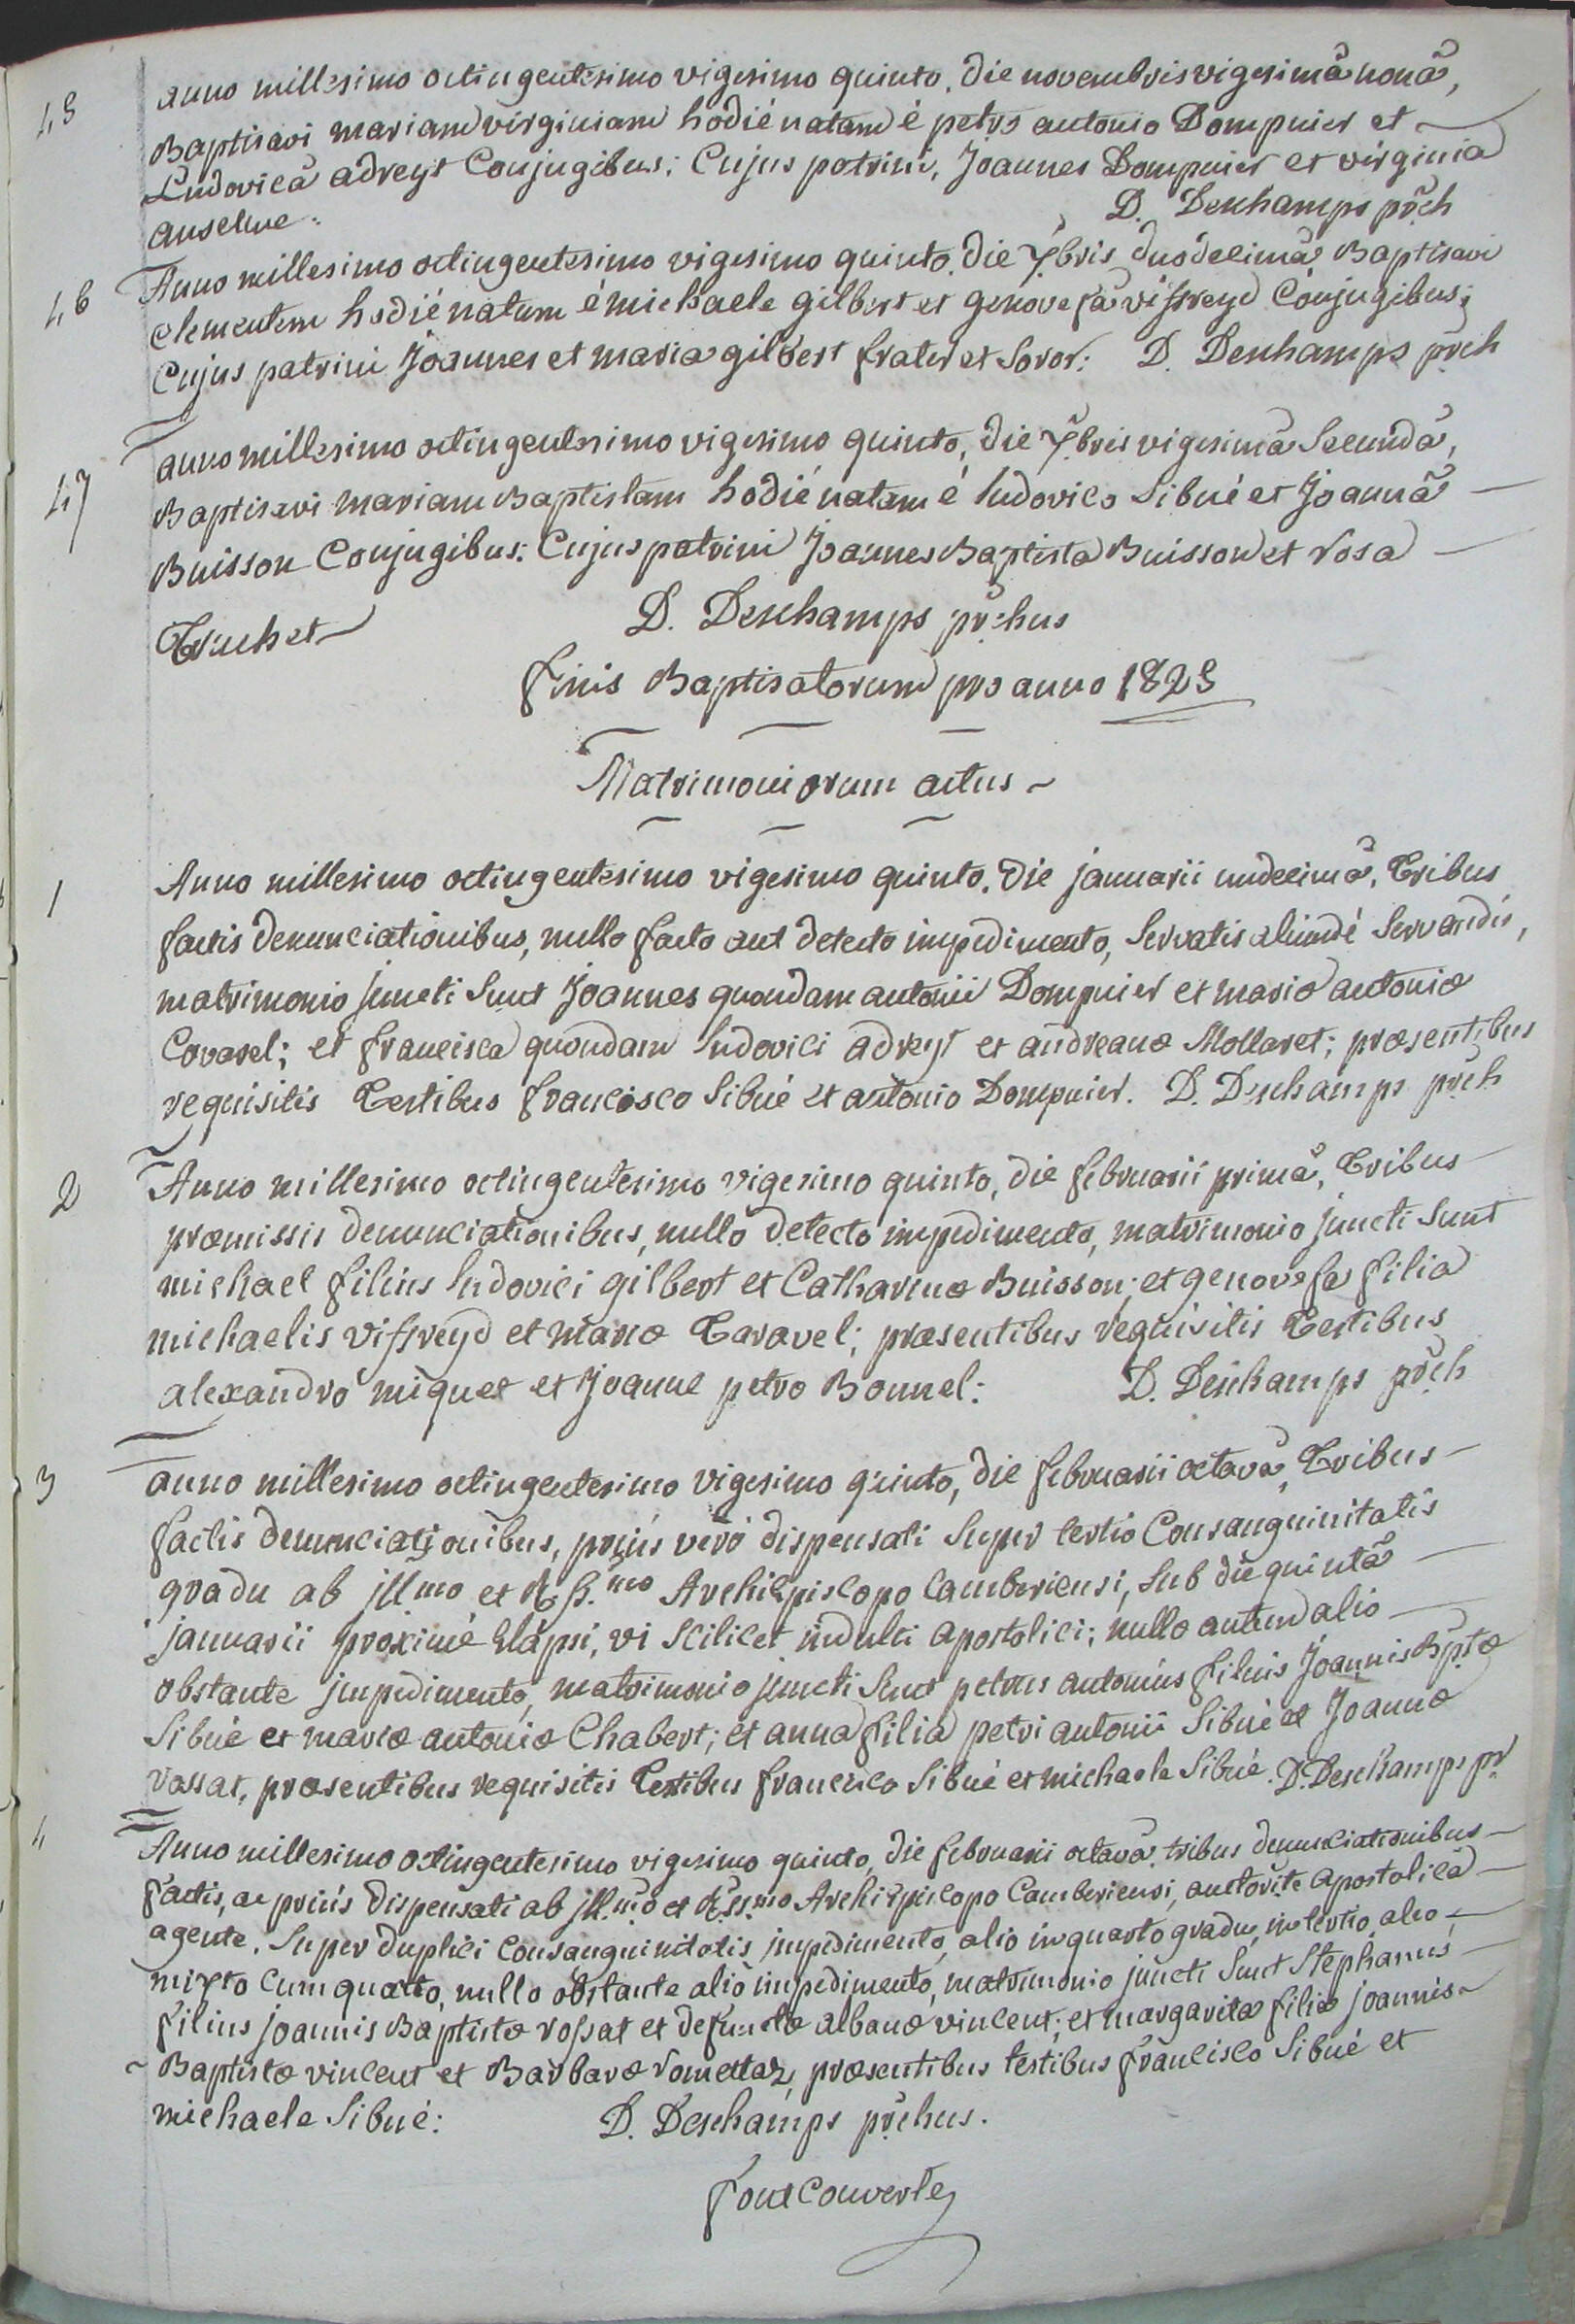 45
anno millesimo octingentesimo vigesimo quinto. die novembris vigesimâ nonâ,
Baptisavi mariam virginiam hodié natam é petro antonio Dompnier et
Ludovicâ adreyt Conjugibus: Cujus patrini, Joannes Dompnier et virginia
anselme: D. Deschamps pr̃ch
46
Anno millesimo octingentesimo vigesimo quinto. die Xbris duodecimâ Baptisavi
clementem hodié natum é michaele gilbert et genovefâ viffreyd Conjugibus;
Cujus patrini Joannes et maria gilbert frater et Soror: D. Deschamps pr̃ch
47
anno millesimo octingentesimo vigesimo quinto, die Xbris vigesimâ Secundâ,
Baptisavi mariam Baptistam hodié natam é ludovico Sibué et Joannâ
Buisson Conjugibus: Cujus patrini Joannes Baptista Buisson et rosa
Truchet D. Deschamps pr̃chus
finis Baptisatorum pro anno 1825
Matrimoniorum actus
1
Anno millesimo octingentesimo vigesimo quinto. die januarii undecimâ, Tribus
factis denunciationibus, nullo facto aut detecto impedimento, Servatis aliundé Servandis,
matrimonio juncti Sunt Joannes quondam antonii Dompnier et mariæ antoniæ
Covarel; et francisca quondam ludovici adreyt et andreanæ Mollaret; præsentibus
requisitis Testibus francisco Sibué et antonio Dompnier. D. Deschamps pr̃ch
2
Anno millesimo octingentesimo vigesimo quinto, die februarii primâ, Tribus
præmissis denunciationibus, nullo detecto impedimento, matrimonio juncti Sunt
michael filius ludovici gilbert et Catharinæ Buisson; et genovefa filia
michaelis viffreyd et mariæ Taravel; præsentibus requisitis Testibus
alexandro miquet et Joanne petro Bonnel: D. Deschamps pr̃ch
3
anno millesimo octingentesimo vigesimo quinto, die februarii octavâ, Tribus
factis denunciationibus, priús veró dispensati Super tertio Consanguinitatis
gradu ab jll.mo et R.ss.mo Archiepiscopo Camberiensi, Sub die quintâ
januarii proximé Elapsi, vi Scilicet indulti apostolici; nullo autem alio
obstante jmpedimento, matrimonio juncti Sunt petrus antonius filius Joannis Bptæ
Sibué et mariæ antoniæ Chabert; et anna filia petri antonii Sibué et Joannæ
rossat, præsentibus requisitis Testibus francisco Sibué et michaele Sibué. D. Deschamps pr
4
Anno millesimo octingentesimo vigesimo quinto, die februarii octavâ, tribus denunciationibus
factis, ac priús dispensati ab jll.mo et R.ss.mo Archiepiscopo Camberiensi, auctorite apostolicâ
agente, Super duplici Consanguinitatis jmpedimento, alio in quarto gradu, in tertio alio
mixto Cum quarto, nullo obstante alio impedimento, matrimonio juncti Sunt Stephanus
filius joannis Baptistæ rossat et defunctæ albanæ vincent; et margarita filia joannis
Baptistæ vincent et Barbaræ romettaz, præsentibus testibus francisco Sibué et
michaele Sibué: D. Deschamps pr̃chus.
fontCouverte